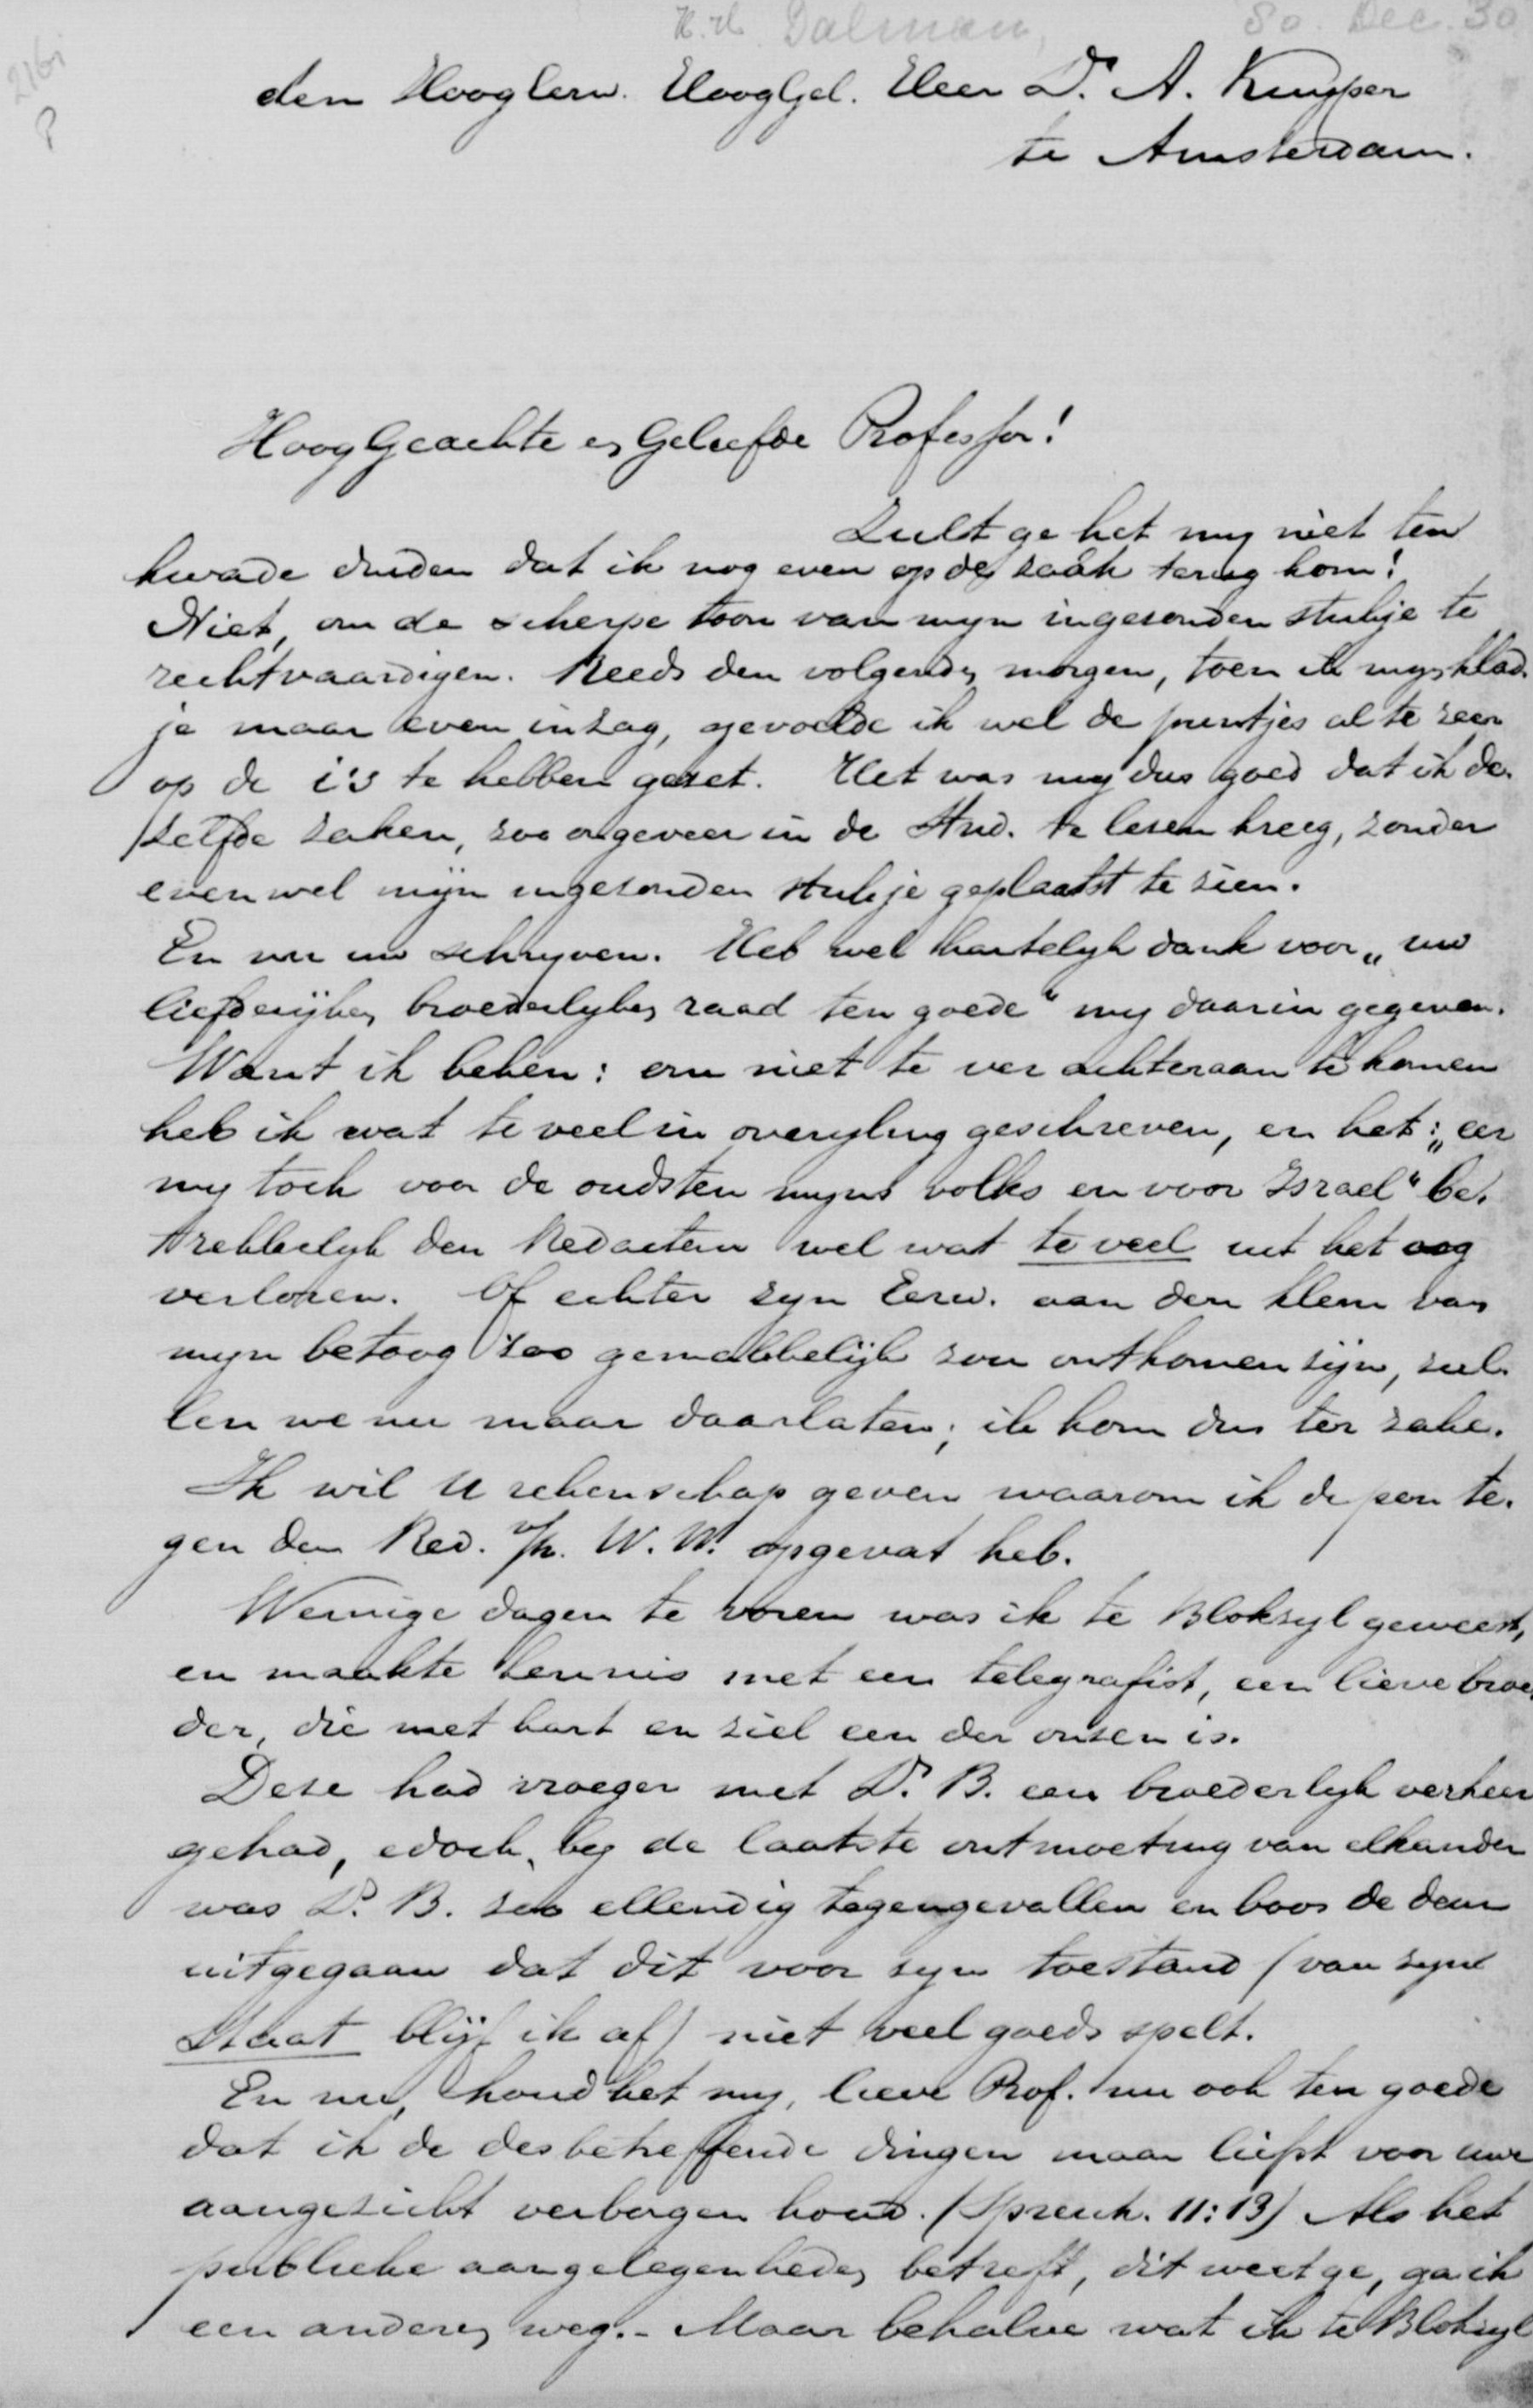 Dalman, 80. Dec. 30
2161
den HoogEerw. HoogGel. Heer Dr. A. Kuyper
te Amsterdam.
HoogGeachte en Geliefde Professor!
Zult ge het my niet ten
kwade duiden dat ik nog even op de zaak terug kom!
Niet, om de scherpe toon van myn ingezonden stukje te
rechtvaardigen. Reeds den volgenden morgen, toen ik myn klad-
je maar even inzag, gevoelde ik wel de puntjes al te zeer
op de i's te hebben gezet. Het was my dus goed dat ik de-
zelfde zaken, zoo ongeveer in de Stad. te lezen kreeg, zonder
evenwel mijn ingezonden stukje geplaatst te zien.
En nu uw schryven. Heb wel hartelyk dank voor „uw
liefderijken broederlyken raad ten goede" my daarin gegeven.
Want ik beken: om niet te ver achteraan te komen
heb ik wat te veel in overyling geschreven, en het: „eer
my toch voor de oudsten myns volks en voor Israel" be-
trekkelyk den Redacteur wel wat te veel uit het oog
verloren. Of echter zyn Eerw. aan den klem van
myn betoog zoo gemakkelijk zou ontkomen zijn, zul-
len we nu maar daarlaten; ik kom dus ter zake.
Ik wil U rekenschap geven waarom ik de pen te-
gen den Red. v/h. W. W. opgevat heb.
Weinige dagen te voren was ik te Blokzyl geweest,
en maakte kennis met een telegrafist, een lieve broe-
der, die met hart en ziel een der onzen is.
Deze had vroeger met Ds. B. een broederlyk verkeer
gehad, edoch, by de laatste ontmoeting van elkander
was Ds. B. zoo ellendig tegengevallen en boos de deur
uitgegaan dat dit voor zyn toestand (van zyn
Staat blijf ik af) niet veel goeds spelt.
En nu, houd het my, lieve Prof. nu ook ten goede
dat ik de desbetreffende dingen maar liefst voor uw
aangezicht verborgen houd. (Spreuk. 11:13) Als het
publieke aangelegenheden betreft, dit weet ge, ga ik
een anderen weg.- Maar behalve wat ik te Blokzyl